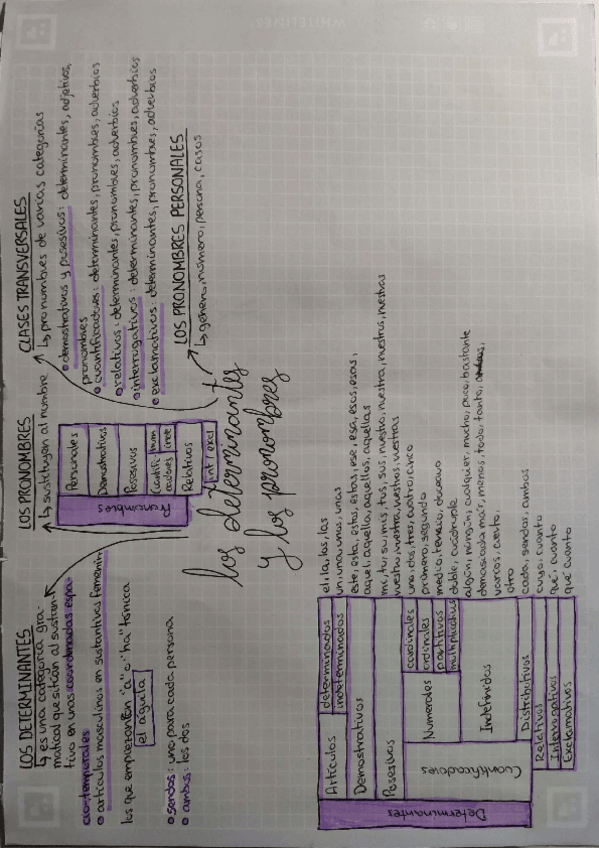 WHITELINES
LOS DETERMINANTES
↳ es una categoría gra-
matical que sitúan al sustan-
tivo en unas coordenadas espa-
cio-temporales
• artículos masculinos en sustantivos femeni-
los que empiezan "a" o "ha" tónica
el águila
• sendos: uno para cada persona
• ambos: los dos
LOS PRONOMBRES
↳ sustituyen al nombre
Pronombres
Personales
Demostrativos
Posesivos
Cuantifi- num
cadores
Relativos
int / excl
CLASES TRANSVERSALES
↳ pronombres de varias categorías
• demostrativos y posesivos: determinantes, adjetivos,
pronombres
• cuantificadores: determinantes, pronombres, adverbios
• relativos: determinantes, pronombres, adverbios
• interrogativos: determinantes, pronombres, adverbios
• exclamativos: determinantes, pronombres, adverbios
LOS PRONOMBRES PERSONALES
↳ género, número, persona, casos
los determinantes
y los pronombres
Determinantes
Artículos
determinados el, la, los, las
indeterminados un, una, unos, unas
Demostrativos este, esta, estos, estas, ese, esa, esos, esas,
aquel, aquella, aquellos, aquellas
Posesivos mi, tu, su, mis, tus, sus, nuestro, nuestra, nuestros, nuestras
vuestro, vuestra, vuestros, vuestras
Cuantificadores
Numerales
cardinales uno, dos, tres, cuatro, cinco
ordinales primero, segundo
partitivos medio, tercio, octavo
multiplicativos doble, cuádruple
Indefinidos algún, ningún, cualquier, mucho, poco, bastante
demasiado, más, menos, todo, tanto,
varios, cierto,
otro
Distributivos cada, sendos, ambos
Relativos cuyo, cuanto
Interrogativos qué, cuánto
Exclamativos qué cuánto